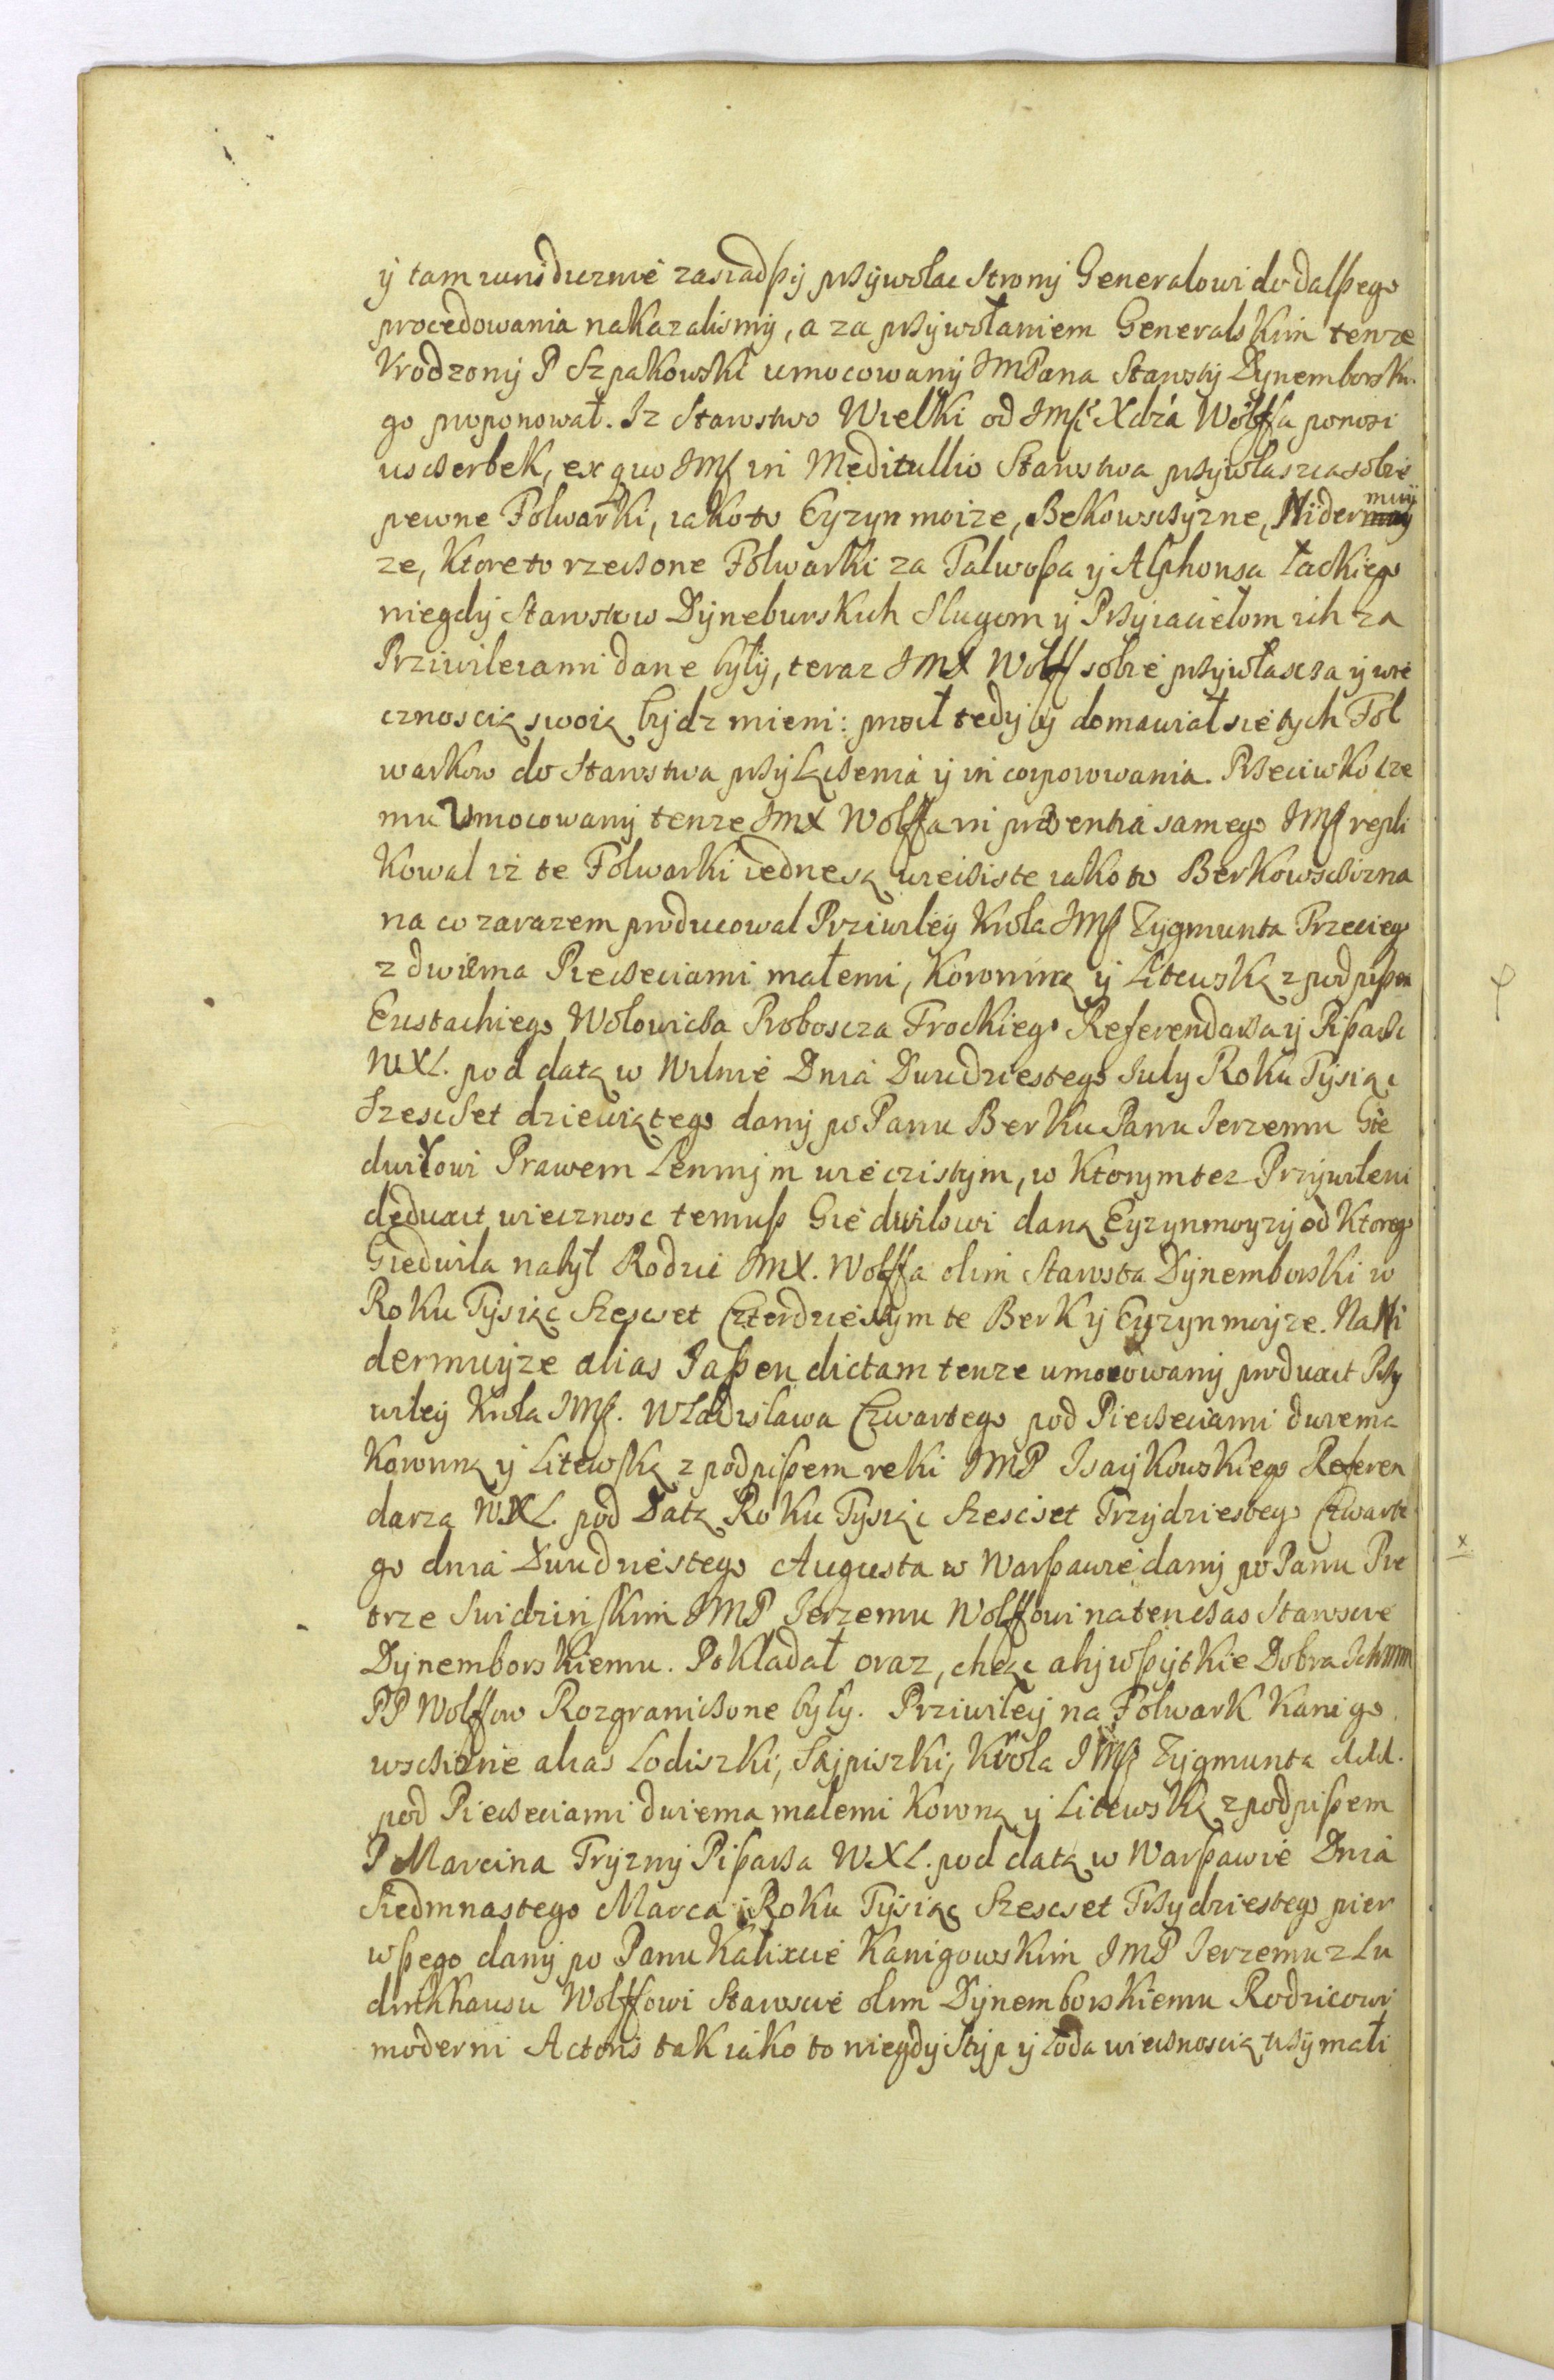 ÿ tam iurisdicznié zasiadszÿ przÿwolac Stronÿ Generalowi do dalszego
procedowania nakazalismÿ, a za przÿwołaniem Generalskim tenze
Vrodzonÿ P Szpakowski umocowanÿ JMPana Starostÿ Dynemborskie.
go proponował. Iz Starostwo Wielki od JMści Xdza Wolffa ponosi
usczerbek, ex quo JMś in Meditullio Starostwa przÿwlaszcza sobie
pewne Folwarki, iako to Eyzyn moize, Bekowsczyzne, Nidermuÿ
ze, Ktore to rzeczone Folwarki za Talwosza ÿ Alphonsa Łackiego
niegdÿ Starostow Dÿneburskich Slugom ÿ Przÿiaciełom ich za
Przivileiami dane bÿłÿ, teraz JMX Wolff sobié przÿwłascza ÿ wié
cznoscią swoią bÿdz mieni: prosił tedÿ ÿ domawiał sié tÿch Fol
warkow do Starostwa przÿłączenia ÿ incorporowania. Przeciwko cze
mu Umocowanÿ tenze JMX Wolffa in præsentia samego JMś repli
kowal iż te Folwarki iedne są wieczÿste iako to Berkowsczizna
na co zarazem producowal Prziwileÿ Krola JMś Zygmunta Trzeciego
z dwiema Pieczeciami małemi, Koronną ÿ Litewską z podpisem
Eustachiego Wołowicza Proboscza Trockiego Referendarza ÿ Pisarza
WXL. pod datą w Wilnié Dnia Dwudziestego July Roku Tÿsiąc
Szescset dziewiątego danÿ po Panu Berku Panu Jerzemu Gie
dwiłowi Prawem Lennÿm wiéczistÿm, w Ktorÿm tez Prziwileiu
deduxit wiecznosc temusz Giédwilowi daną Eyzynmoyzÿ od Ktorego
Giedwila nabÿł Rodzic JMX. Wolffa olim Starosta Dÿnemborski w
Roku Tÿsiąc Szescset Czterdziéstÿm te Berk ÿ Eyzynmuÿze. Na Ni
dermuÿze alias Jaszen dictam tenze umocowanÿ produxit Przÿ
wileÿ Krola JMś. Wladislawa Czwartego pod Pieczeciami dwiema
Koronną ÿ Litewską z podpisem reki JMP Isaÿkowskiego Referen
darza WXL. pod Datą Roku Tysiąc Szescset Trzÿdziestego Czwarte
go dnia Dwudziéstego Augusta w Warszawié danÿ po Panu Pie
trze Swidzińskim JMP Jerzemu Wolffowi natenczas Staroscie
Dÿnemborskiemu. Pokładał oraz, chcąc abÿ wszÿtkie Dobra Ichmm
PP Wolffow Rozgraniczone bÿlÿ. Prziwileÿ na Folwark Kanigo
wsczizne alias Lodiszki, Sajpiszki, Króla JMś Zÿgmunta
pod Pieczeciami dwiema małemi Koroną ÿ Litewską z podpisem
P Marcina Tryznÿ Pisarza WXL. pod datą w Warszawié Dnia
Siedmnastego Marca Roku Tÿsiąc Szescset Trzÿdziestego pier
wszego danÿ po Panu Kalixcié Kanigowskim JMP Jerzemu z Lu
dinkhausu Wolffowi Staroscié olim Dÿnemborskiemu Rodzicowi
moderni Actoris tak iako to niegdÿ Stÿp ÿ Łoda wiecznoscią trzÿmali